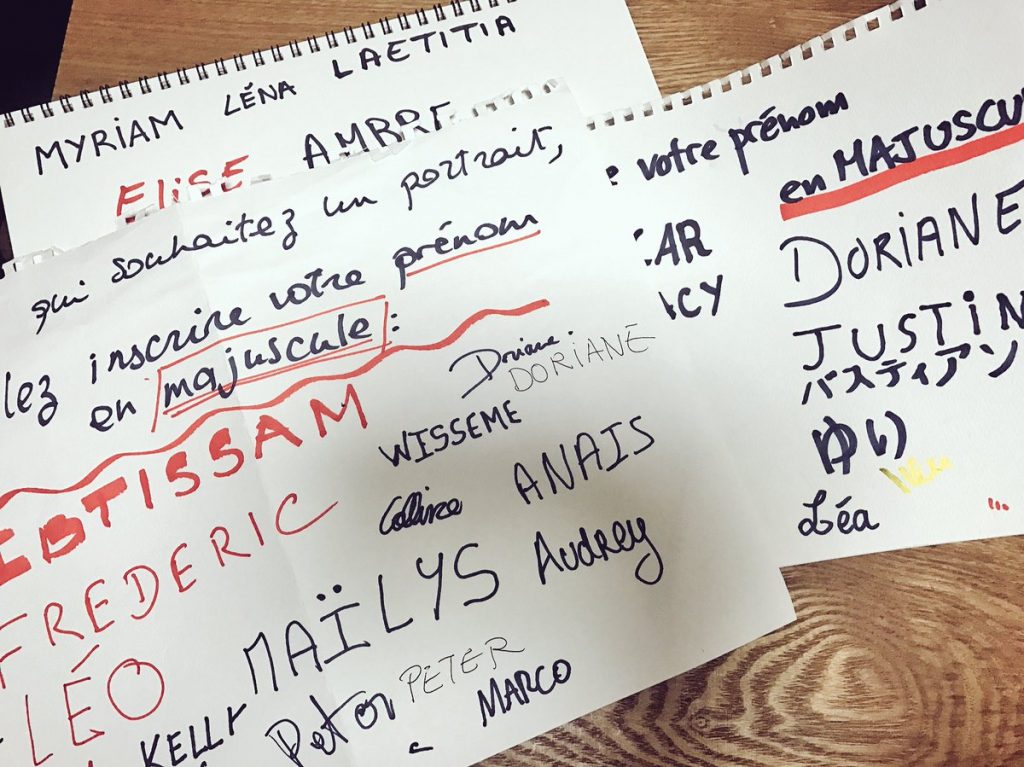 MYRIAM LÉNA LAETITIA
ELiSE
qui souhaitez un portrait,
lez inscrire votre prénom
en majuscule :
IBTISSAM
FREDERIC
LÉO
KELLY
Doriane
DORIANE
WISSEME
ANAIS
MAÏLYS
Audrey
PETER
MARCO
votre prénom
en MAJUSCU
AR
CY
DORiANE
JUSTiN
バスティアン
ゆり
Léa